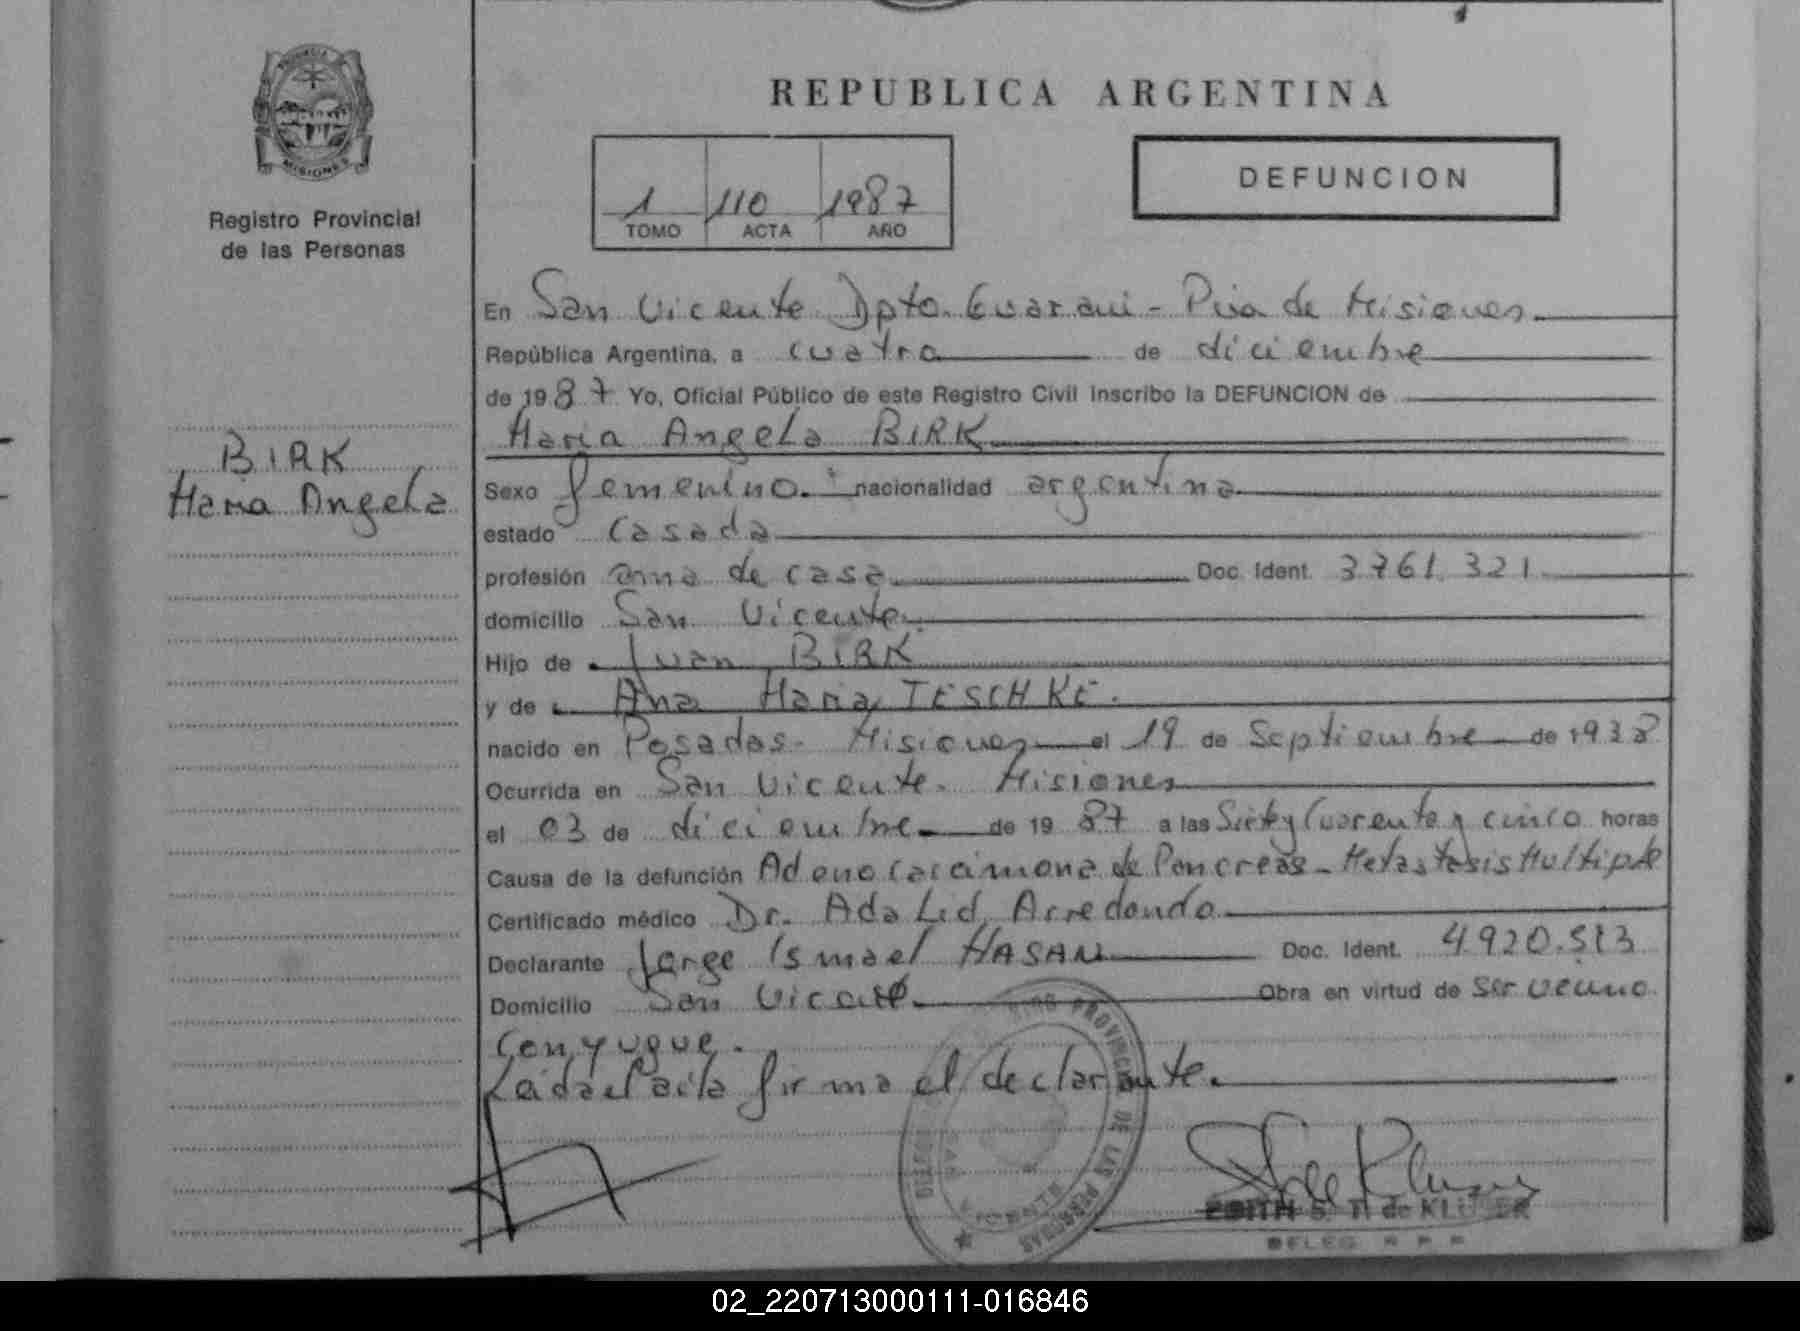 PROVINCIA
MISIONES
Registro Provincial
de las Personas
BIRK
Maria Angela
REPUBLICA ARGENTINA
1 110 1987
TOMO ACTA AÑO
DEFUNCION
En San Vicente Dpto. Guarani - Pcia de Misiones.
República Argentina, a cuatro de diciembre
de 1987 Yo, Oficial Público de este Registro Civil Inscribo la DEFUNCION de
Maria Angela BIRK
Sexo femenino. nacionalidad argentina
estado casada
profesión ama de casa Doc. Ident. 3761.321
domicilio San Vicente.
Hijo de Juan BIRK
y de Ana Maria TESCHKE.
nacido en Posadas - Misiones el 19 de Septiembre de 1938
Ocurrida en San Vicente. Misiones
el 03 de diciembre de 1987 a las Siete y Cuarenta y cinco horas
Causa de la defunción Adenocarcimona de Pancreas - Metastasis Multiple
Certificado médico Dr. Adalid Arredondo
Declarante Jorge Ismael HASAN Doc. Ident. 4.920.513
Domicilio San Vicente Obra en virtud de Ser
Conyugue.
Leida el acta firma el declarante.
PROVINCIAL DE LAS PERSONAS
SAN VICENTE
EDITH S. T. de
DELEG. R P P
02_220713000111-016846